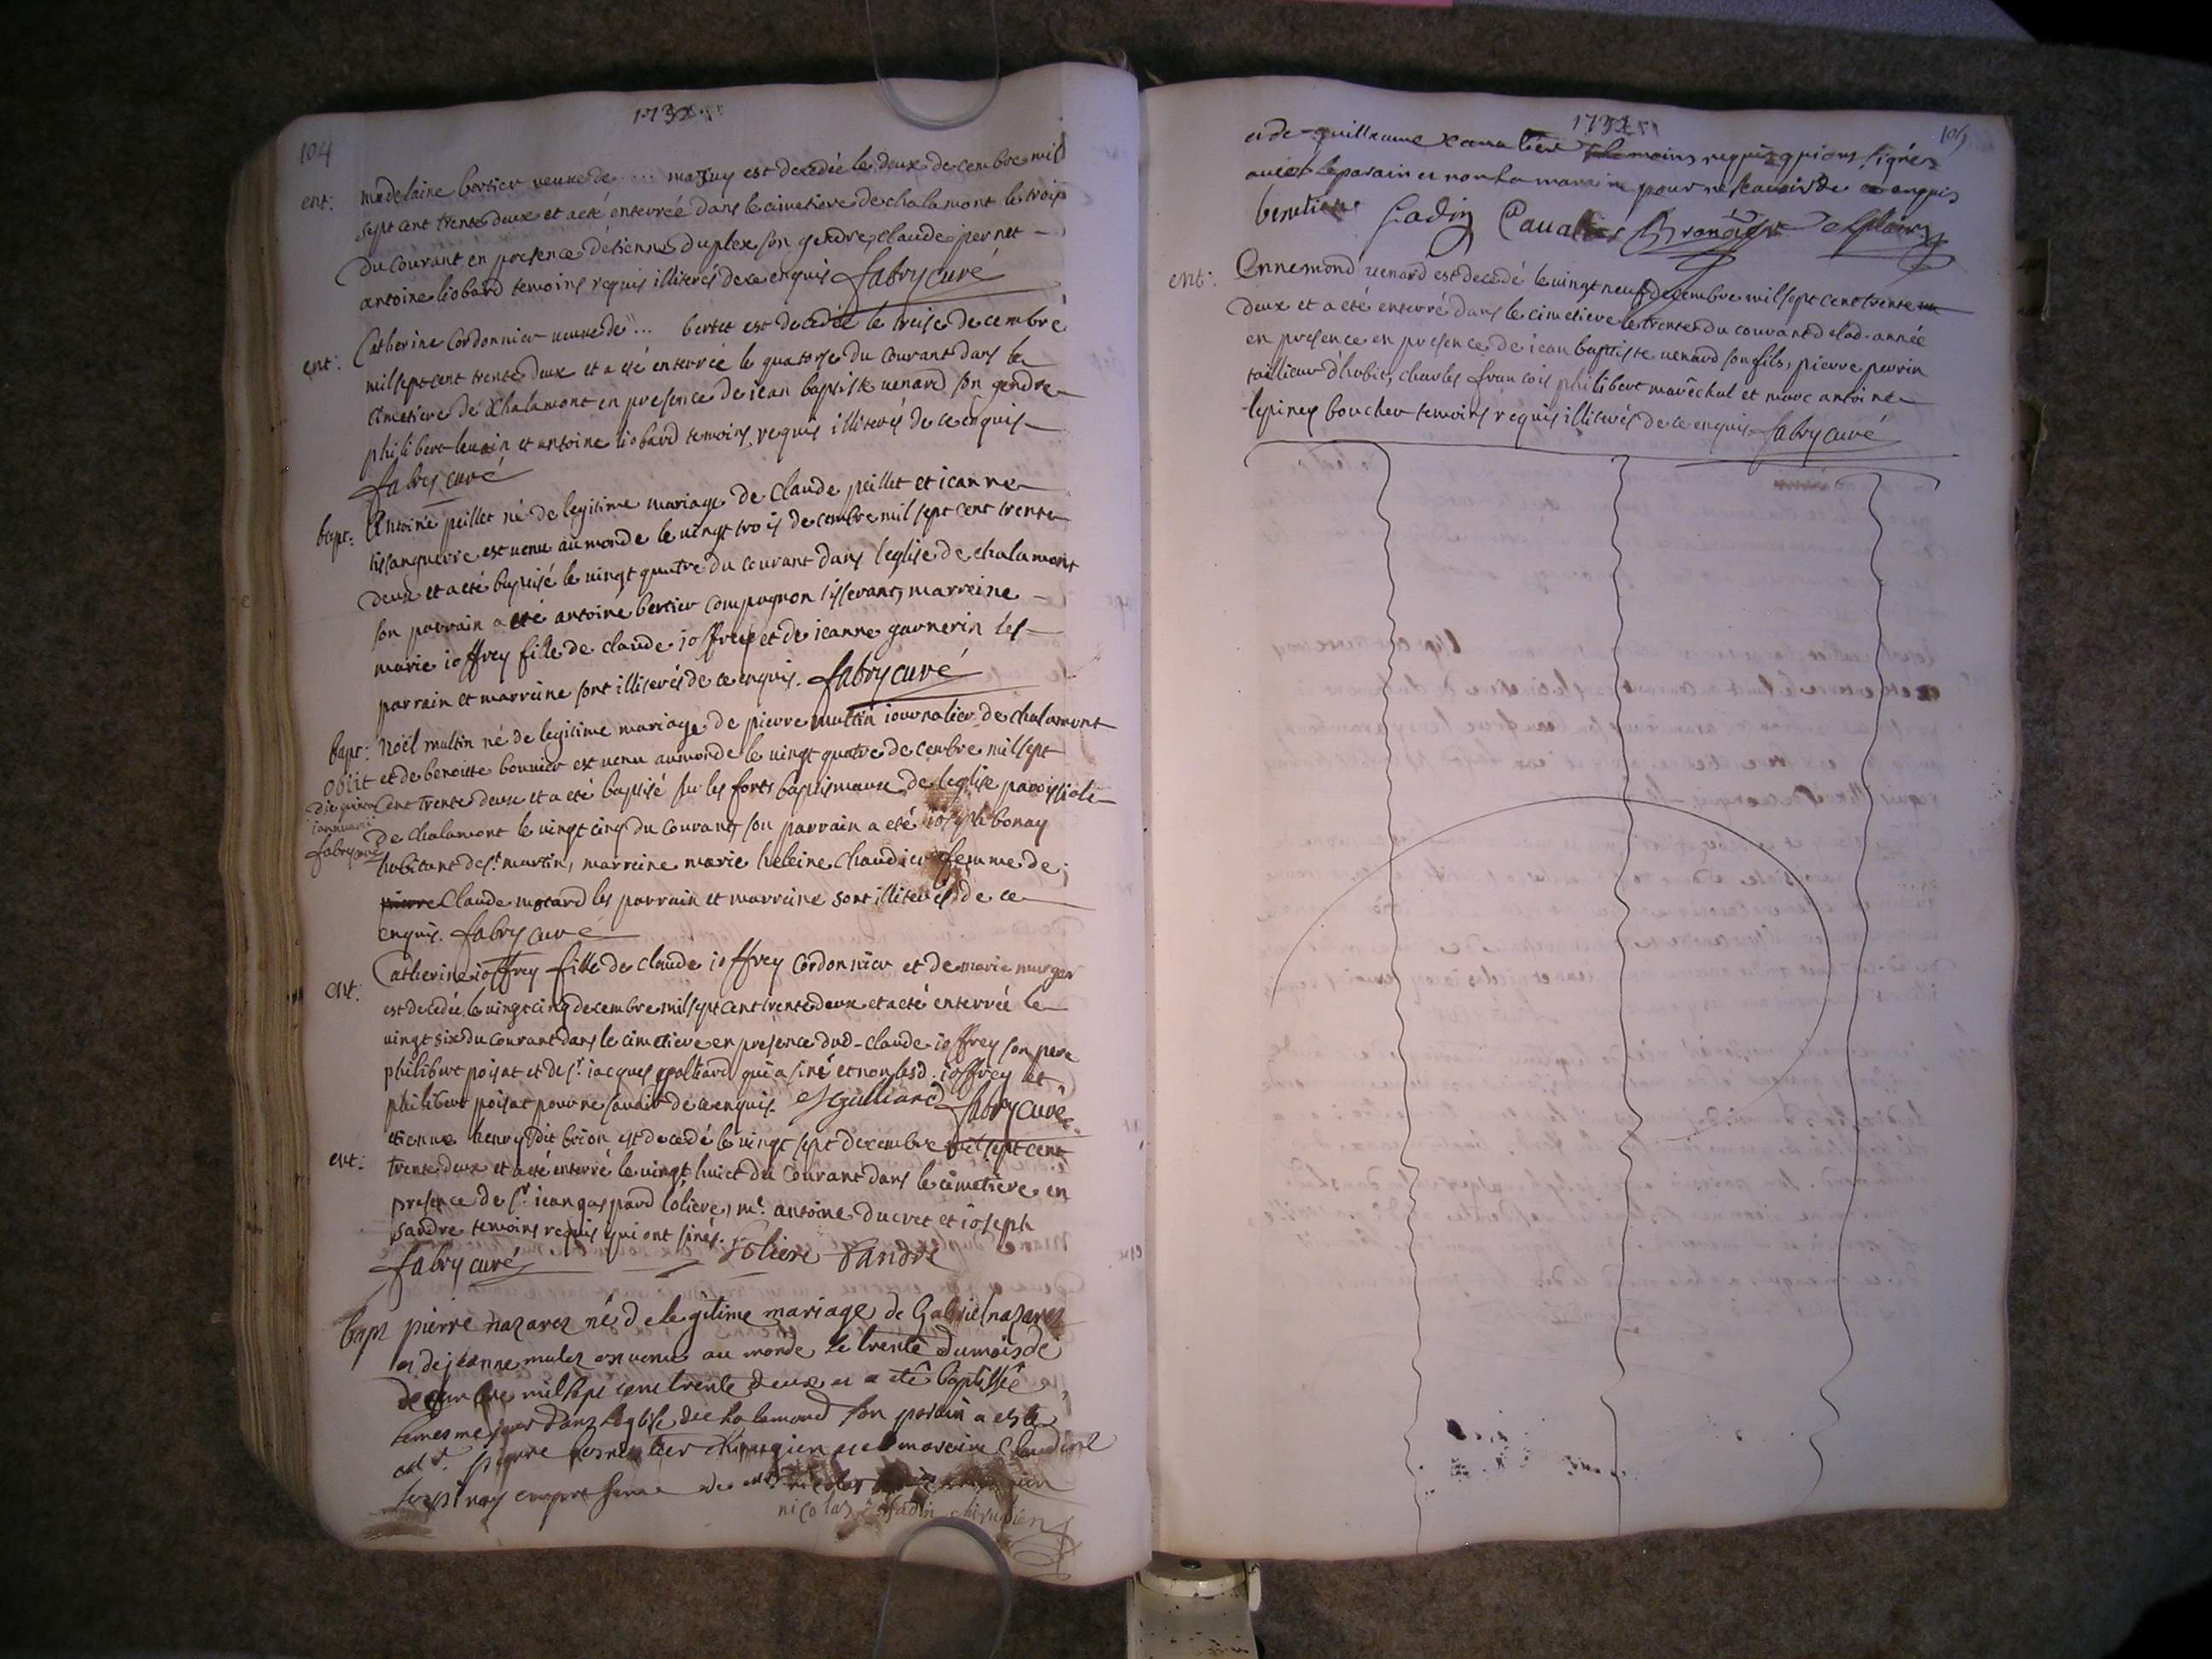 104
1732
ent: madelaine bertier veuve de .... mazuy est decedée le deux decembre mil
sept cent trente deux et a eté enterrée dans le cimetiere de chalamont le trois
du courant en presence d'etienne duplex son gendre, claude pernet
antoine liobard temoins requis illiterés de ce enquis fabry curé
ent: Catherine Cordonnier veuve de ... bertet est decedée le treise decembre
mil sept cent trente deux et a eté enterrée le quatorse du courant dans le
cimetiere de Chalamont en presence de jean baptiste venard son gendre
philibert et antoine liobard temoins requis illiterés de ce enquis
fabry curé
bapt: Antoine peillet né de legitime mariage de Claude peillet et jeanne
est venu au monde le vingt trois decembre mil sept cent trente
deux et a eté baptisé le vingt quatre du courant dans l'eglise de chalamont
son parrain a eté antoine bertier compagnon tisserant, marreine
marie joffrey fille de claude joffrey et de jeanne garnerin les
parrain et marreine sont illiterés de ce enquis. fabry curé
bapt: Noël multin né de legitime mariage de pierre multin journalier de chalamont
obiit et de benoitte bouvier est venu au monde le vingt quatre decembre mil sept
die januarii cent trente deux et a eté baptisé sur les fonts baptismaux de l'eglise
fabry curé de chalamont le vingt cinq du courant, son parrain a eté joseph bonay
habitant de st. martin, marreine marie heleine chaudier femme de
pierre Claude motard les parrain et marreine sont illiterés de ce
enquis. fabry curé
ent: Catherine joffrey fille de claude joffrey Cordonnier et de marie
est decedée le vingt cinq decembre mil sept cent trente deux et a eté enterrée le
vingt six du courant dans le cimetiere en presence dud. claude joffrey son pere
philibert poisat et de sr. jacques galliard qui a siné et non lesd. joffrey et
philibert poisat pour ne savoir de ce enquis. Galliard fabry curé
ent: etienne henry dit brion est decedé le vingt sept decembre mil sept cent
trente deux et a eté enterré le vingt huict du courant dans le cimetiere en
presence de sr. jean gaspard loliere, me. antoine ducret et joseph
sandre temoins requis qui ont sinés. Loliere Sandre
fabry curé
bapt pierre nazarez né de legitime mariage de Gabriel nazarez
et de jeanne mulez est venu au monde le trente du mois de
decembre mil sept cent trente deux et a eté baptissé
le mesme jour dans leglise de chalamond son parain a esté
pierre chirurgien et maraine Claudine
femme de
nicolas gadin chirugien
1732
105
et de guillaume Cavalier temoins requis qui ont signés
avec le parain et non la maraine pour ne scavoir de ce enquis
Gadin Cavalier
ent: Ennemond venard est decedé le vingt neuf decembre mil sept cent trente
deux et a eté enterré dans le cimetiere le trente du courant de lad. année
en presence en presence de jean baptiste venard son fils, pierre perrin
taillieur d'habit, charles francois philibert maréchal et marc antoine
lepiney boucher temoins requis illiterés de ce enquis fabry curé